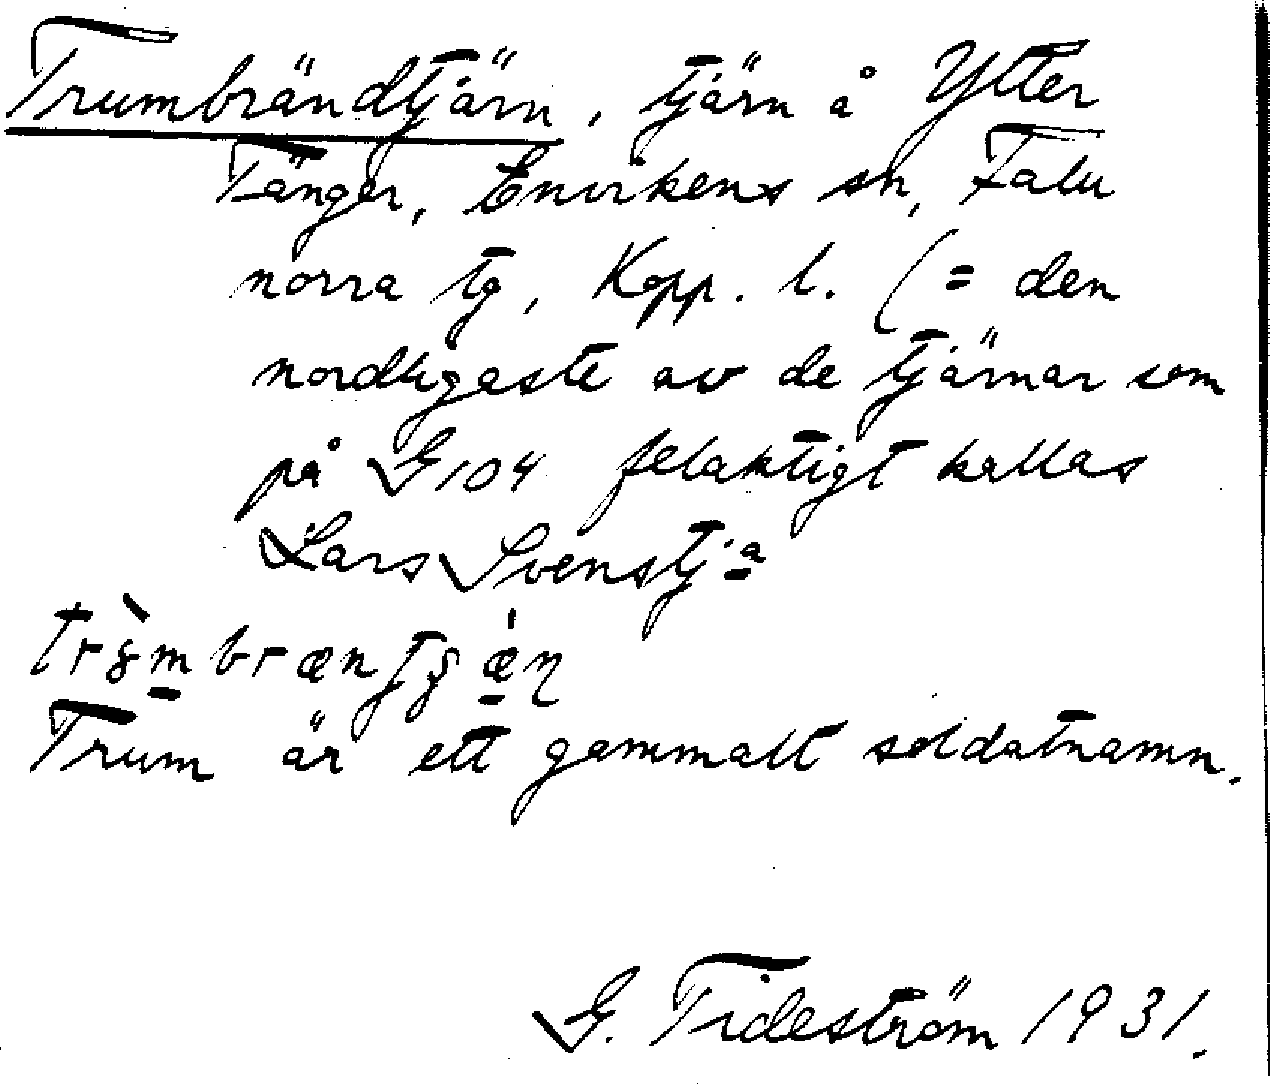 Trumbrändtjärn, tjärn å Ytter
Tänger, Envikens sn, Falu
norra tg, Kopp. l. (= den
nordligaste av de tjärnar som
på G104 felaktigt kallas
Lars Svenstj:a
Trum är ett gammalt soldatnamn.
G. Tideström 1931.